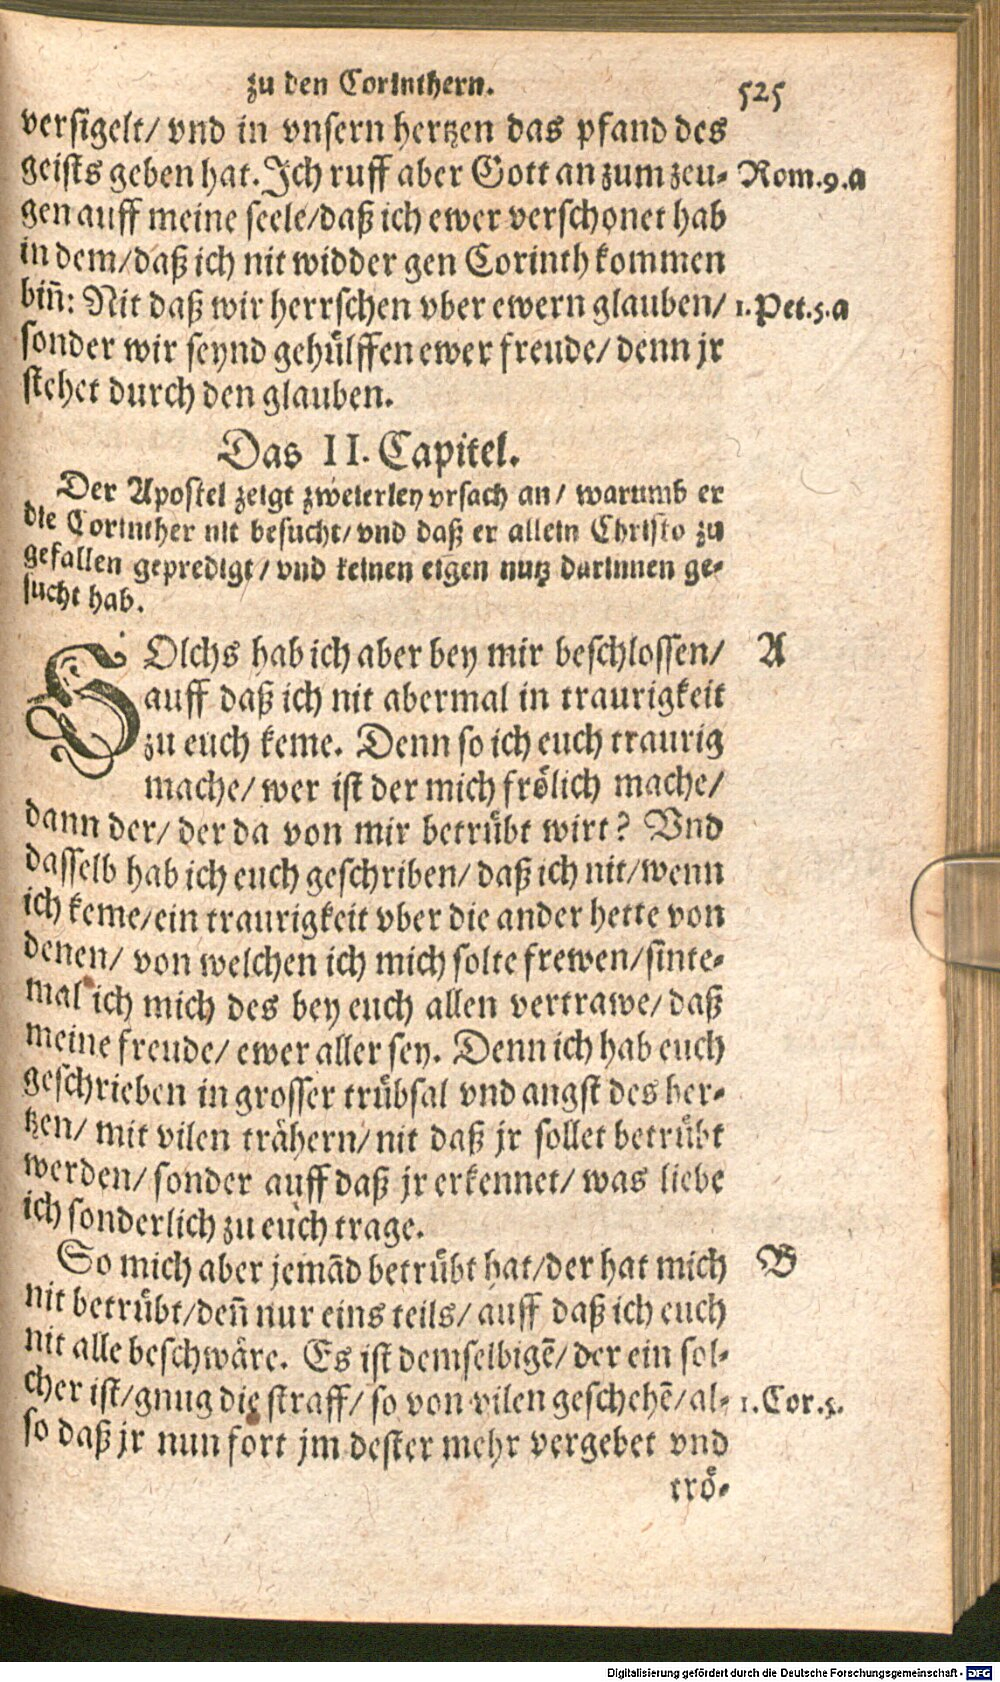 zu den Corinthern.
525
versigelt/ vnd in vnsern hertzen das pfand des
geists geben hat. Ich ruff aber Gott an zum zeu- Rom.9.a
gen auff meine seele/daß ich ewer verschonet hab
in dem/daß ich nit widder gen Corinth kommen
biñ: Nit daß wir herrschen vber ewern glauben/ 1.Pet.5.a
sonder wir seynd gehülffen ewer freude/ denn jr
stehet durch den glauben.
Das II. Capitel.
Der Apostel zeigt zweierley vrsach an/ warumb er
die Corinther nit besucht/ vnd daß er allein Christo zu
gefallen gepredigt/ vnd keinen eigen nutz darinnen ge-
sucht hab.
SOlchs hab ich aber bey mir beschlossen/ A
auff daß ich nit abermal in traurigkeit
zu euch keme. Denn so ich euch traurig
mache/ wer ist der mich frölich mache/
dann der/ der da von mir betrübt wirt? Vnd
dasselb hab ich euch geschriben/ daß ich nit/wenn
ich keme/ein traurigkeit vber die ander hette von
denen/ von welchen ich mich solte frewen/sinte-
mal ich mich des bey euch allen vertrawe/ daß
meine freude/ ewer aller sey. Denn ich hab euch
geschrieben in grosser trübsal vnd angst des her-
tzen/ mit vilen trähern/ nit daß jr sollet betrübt
werden/ sonder auff daß jr erkennet/ was liebe
ich sonderlich zu euch trage.
So mich aber jemād betrübt hat/der hat mich B
nit betrübt/deñ nur eins teils/ auff daß ich euch
nit alle beschwäre. Es ist demselbigē/ der ein sol-
cher ist/gnug die straff/ so von vilen geschehē/al- 1.Cor.5.
so daß jr nun fort jm dester mehr vergebet vnd
trö-
Digitalisierung gefördert durch die Deutsche Forschungsgemeinschaft - DFG